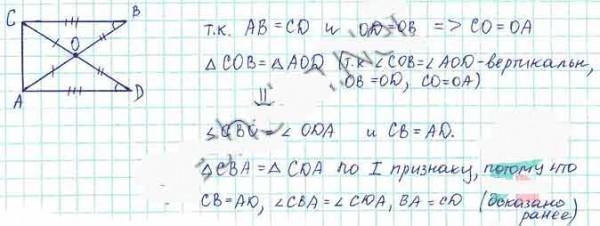 C B
O
A D
т.к. AB = CD и OD = OB => CO = OA
△ COB = △ AOD (т.к. ∠COB = ∠AOD - вертикальн,
OB = OD, CO = OA)
⇓
∠CBO = ∠ODA и CB = AD.
△CBA = △CDA по I признаку, потому что
CB = AD, ∠CBA = ∠CDA, BA = CD (доказано
ранее)